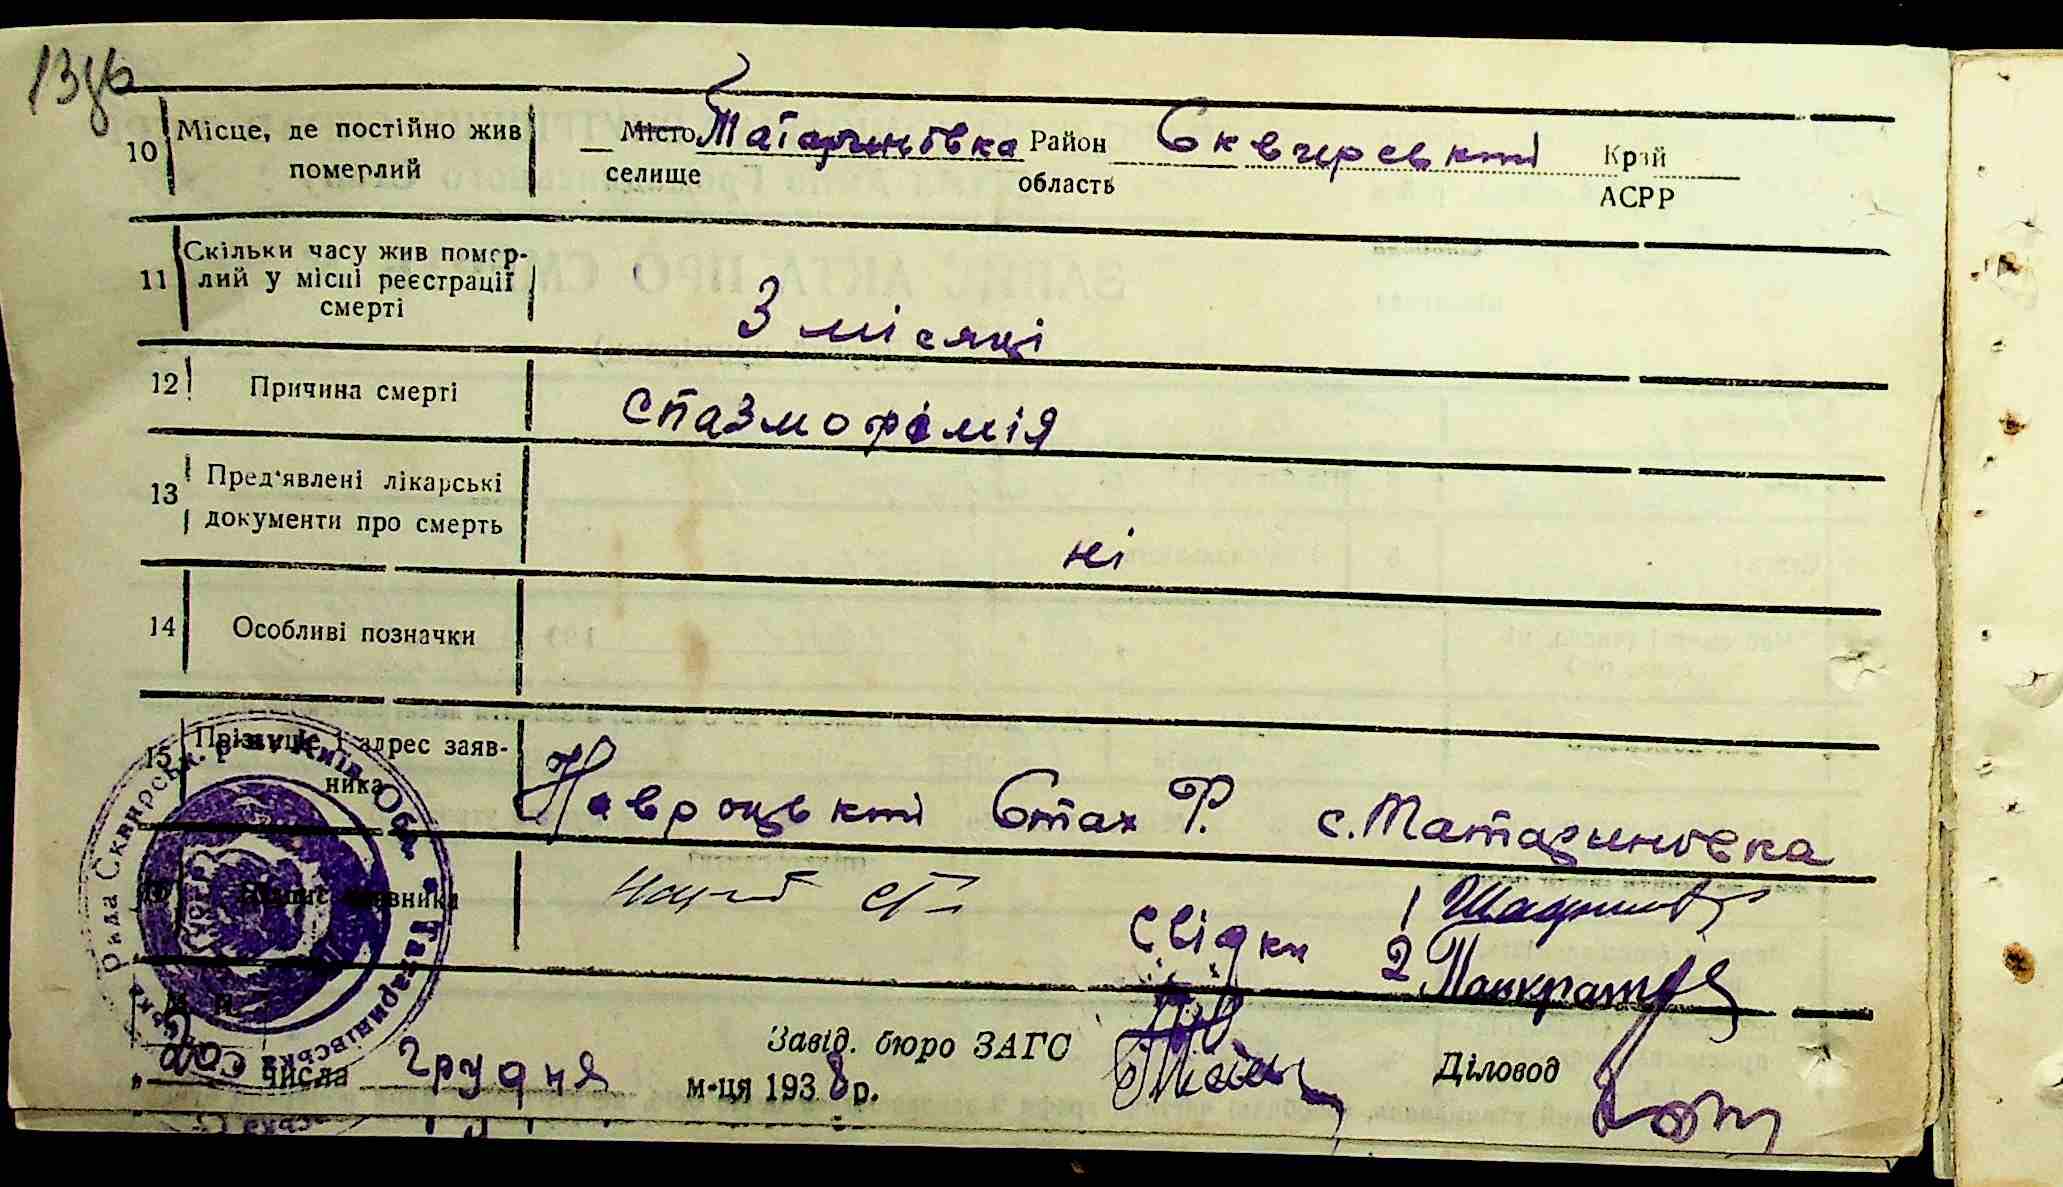 13зв
10 Місце, де постійно жив померлий
Місто Татаринівка Район Сквирський Край
селище область АСРР
11 Скільки часу жив помер-
лий у місці реєстрації
смерті
3 місяці
12 Причина смерті
спазмофілія
13 Пред'явлені лікарські
документи про смерть
ні
14 Особливі позначки
15 Прізвище і адрес заяв-
ника
Навроцький Стах Р. с. Татариновка
заявника
Свідки 1
2. Панкратов
Завід. бюро ЗАГС
Діловод
числа грудня м-ця 1938 р.
Рада Сквирськ. р-ну Київ. Обл. Татаринівська